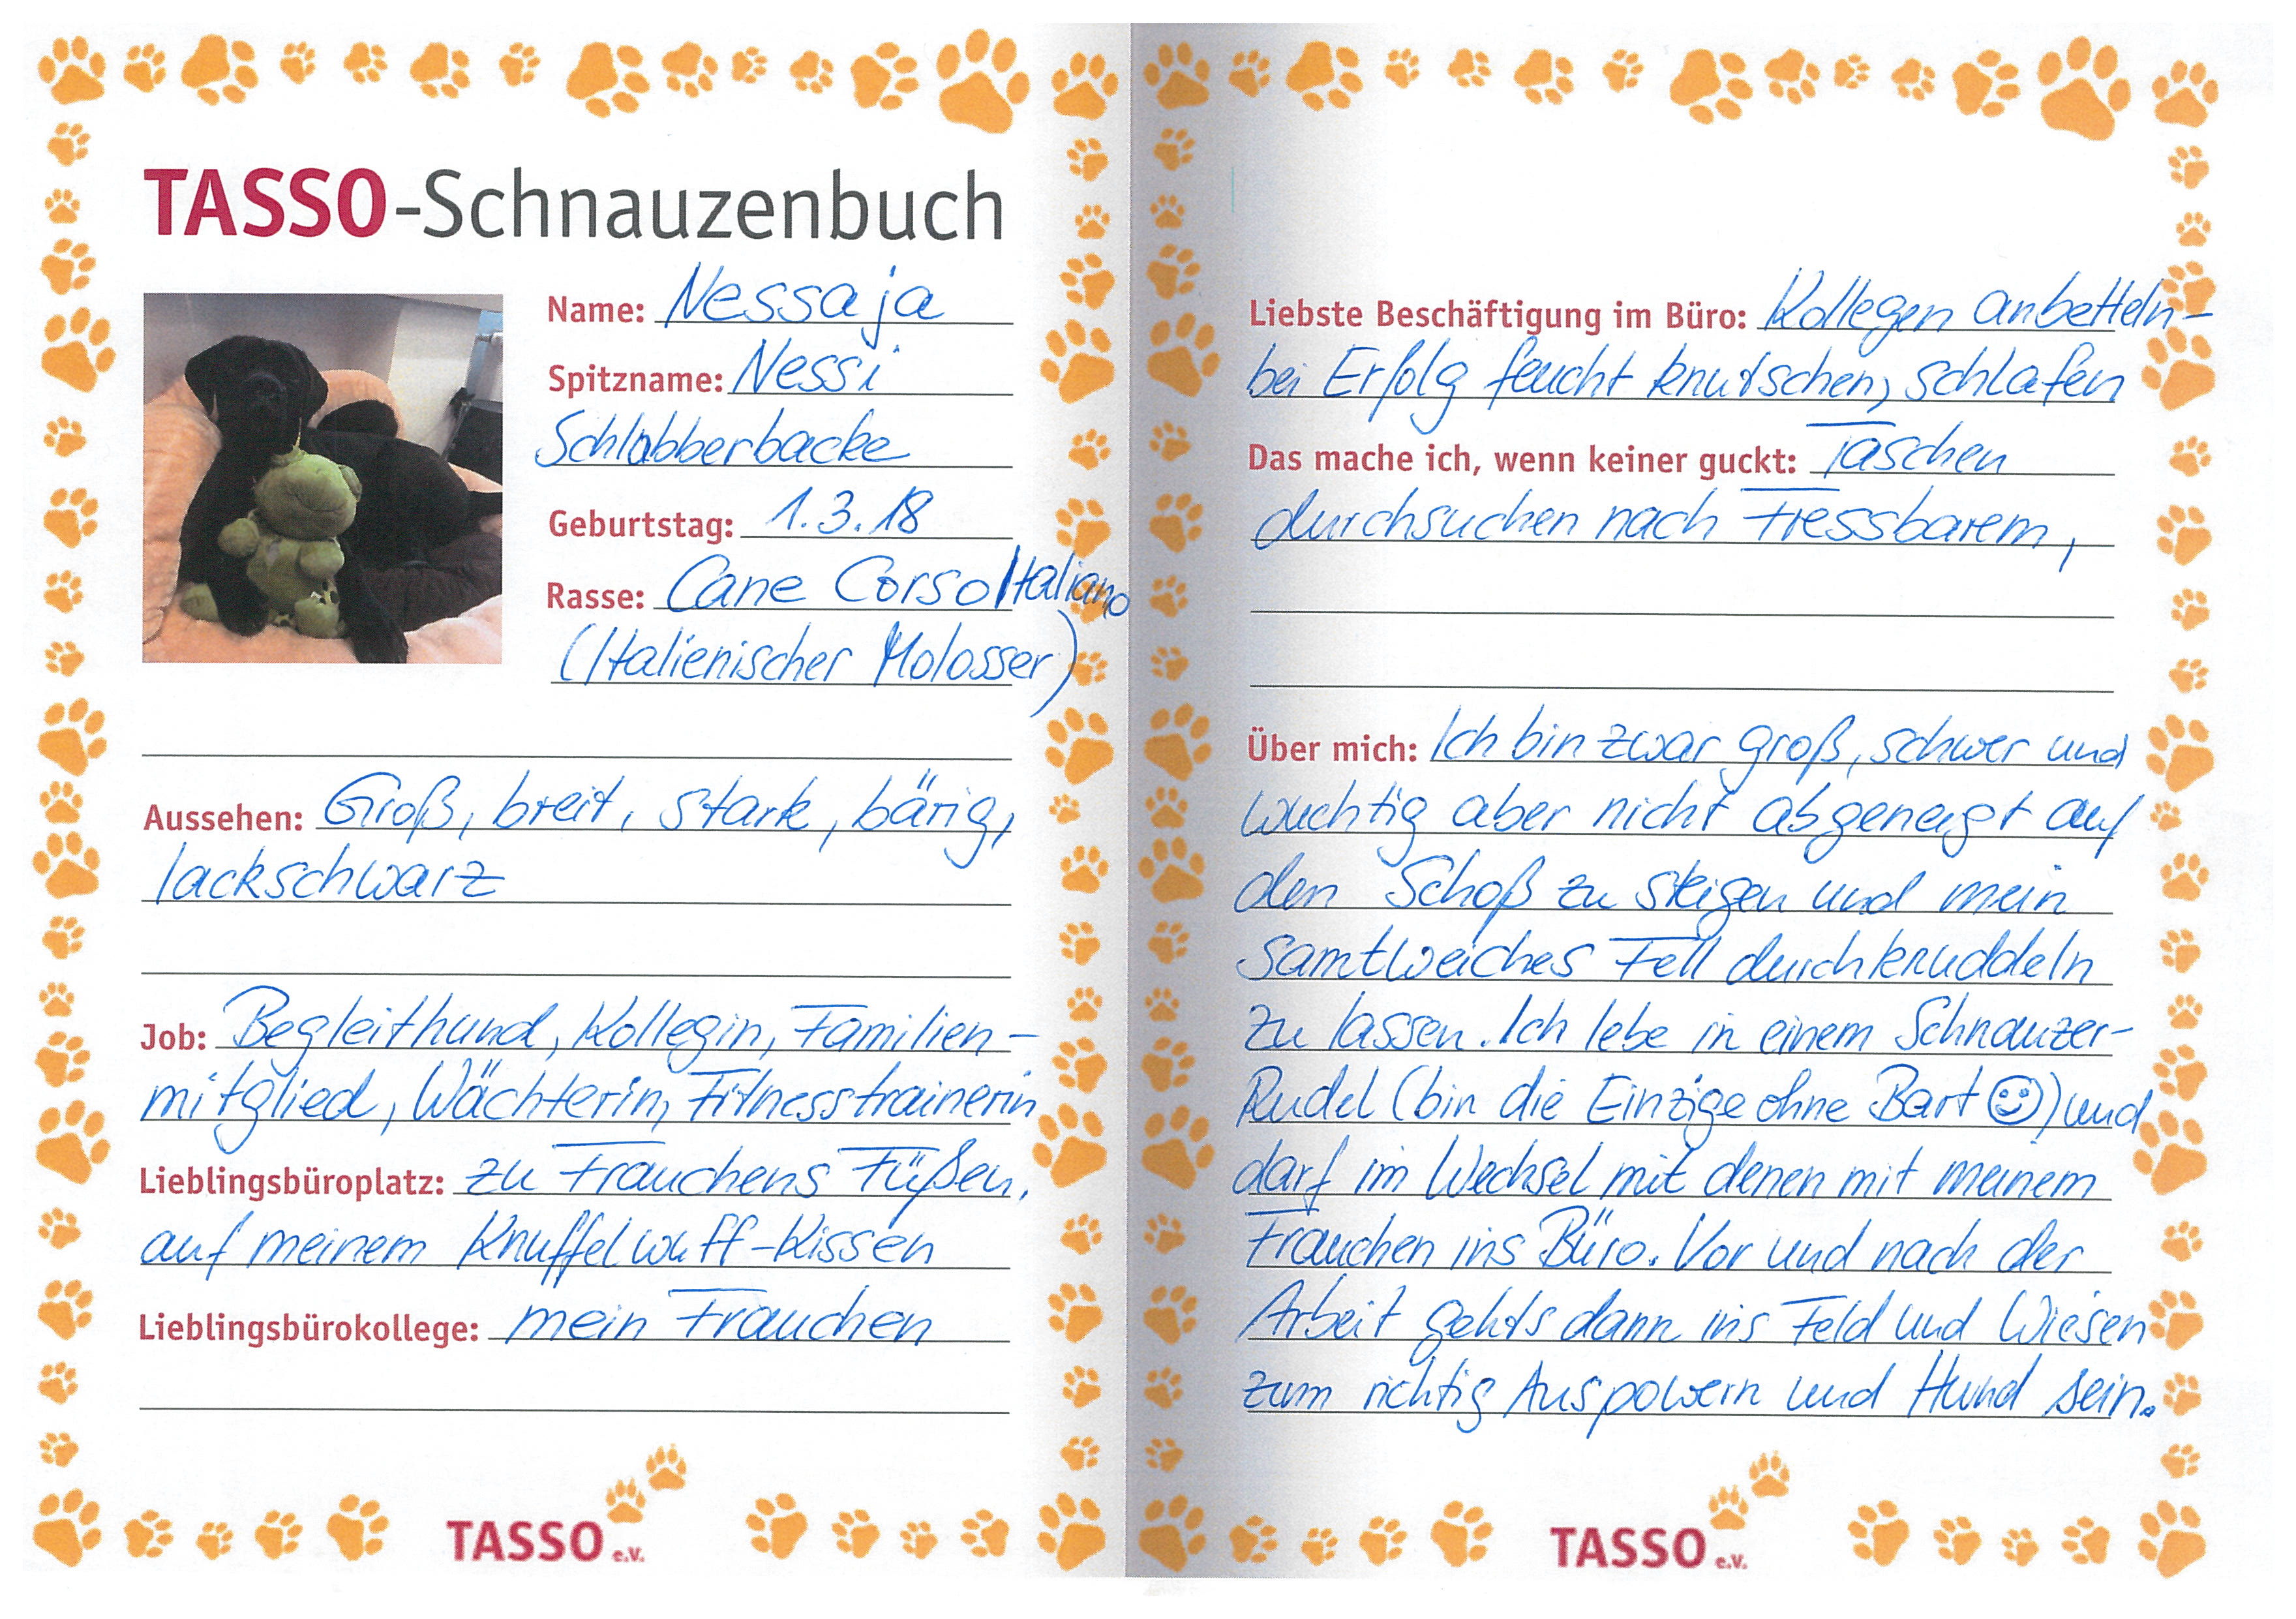 TASSO-Schnauzenbuch
Name: Nessaja
Spitzname: Nessi
Schlabberbacke
Geburtstag: 1.3.18
Rasse: Cane Corso Italiano
(Italienischer Molosser)
Aussehen: Groß, breit, stark, bärig,
lackschwarz
Job: Begleithund, Kollegin, Familien-
mitglied, Wächterin, Fitnesstrainerin
Lieblingsbüroplatz: zu Frauchens Füßen,
auf meinem Knuffelwuff-Kissen
Lieblingsbürokollege: mein Frauchen
TASSO e.V.
Liebste Beschäftigung im Büro: Kollegen anbetteln-
bei Erfolg feucht knutschen, schlafen
Das mache ich, wenn keiner guckt: Taschen
durchsuchen nach Fressbarem,
Über mich: Ich bin zwar groß, schwer und
wuchtig aber nicht abgeneigt auf
den Schoß zu steigen und mein
samtweiches Fell durchknuddeln
zu lassen. Ich lebe in einem Schnauzer-
Rudel (bin die Einzige ohne Bart ☺) und
darf im Wechsel mit denen mit meinem
Frauchen ins Büro. Vor und nach der
Arbeit gehts dann ins Feld und Wiesen
zum richtig Auspowern und Hund sein.
TASSO e.V.